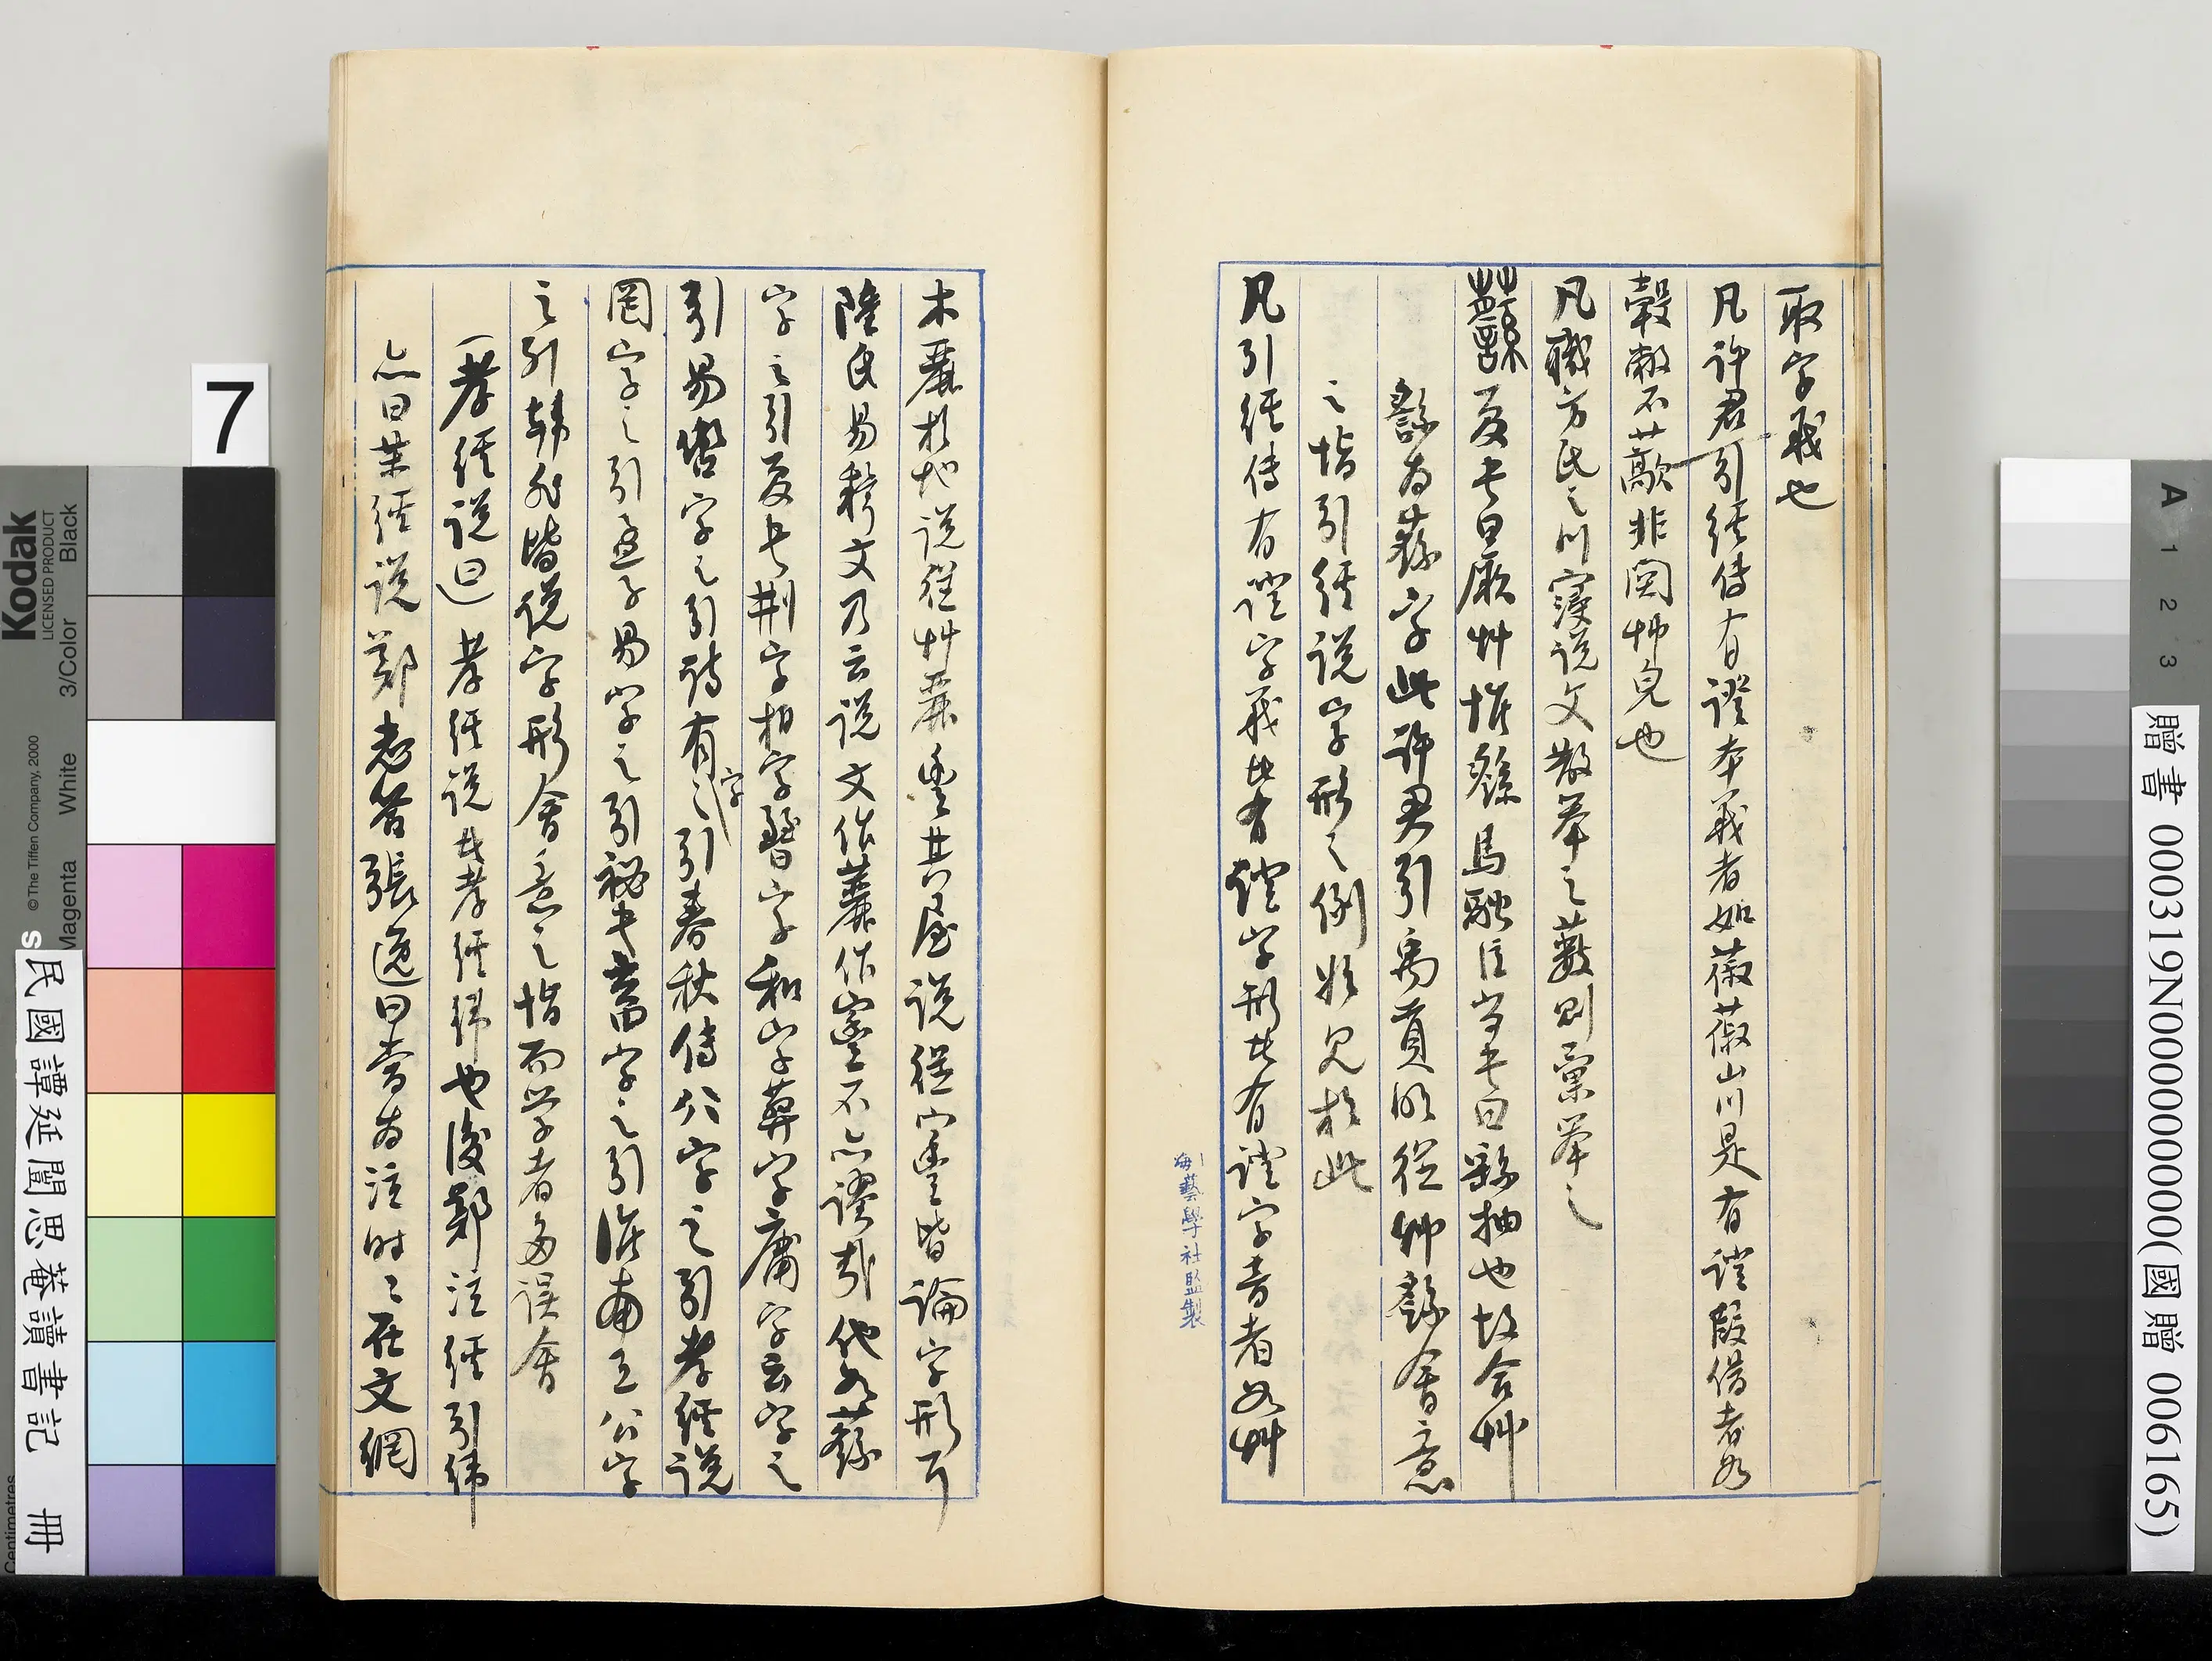 取字義也
凡許君引經傳有證本義者如蔋蔋山川是有證叚借者如
㝅敝不蔽非關艸皃也
凡職方氏之川寖說文散舉之藪則彙舉之
蘨夏書曰厥艸惟繇馬融注尚書曰繇抽也故合艸
繇為蘨字此許君引禹貢明從艸繇會意
之恉引經說字形之例始見於此
凡引經傳有證字義者有證字形者有證字音者如艸
木麗於地說從艸麗豐其屋說從宀豐皆論字形耳
陸氏易釋文乃云說文作䕻作寷不亦謬哉他如蘨
字之引夏書荆字相字晵字和字葬字庸字云字之
引易𧥺字之引詩有字之引春秋傳公字之引孝經說
罔字之引孟子易字之引秘書畜字之引淮南王公字
之引韓非皆說字形會意之恉而学者多誤會
孝經說曰 孝經說者孝經緯也後鄭注經引緯
亦曰某經說鄭志答張逸曰當為注時時在文網
海藝學社監製
7
Kodak
LICENSED PRODUCT
© The Tiffen Company, 2000
Black
3/Color
White
Magenta
Centimetres
民國譚延闓思菴讀書記 冊
A 1 2 3
贈書 000319N000000000(國贈 006165)